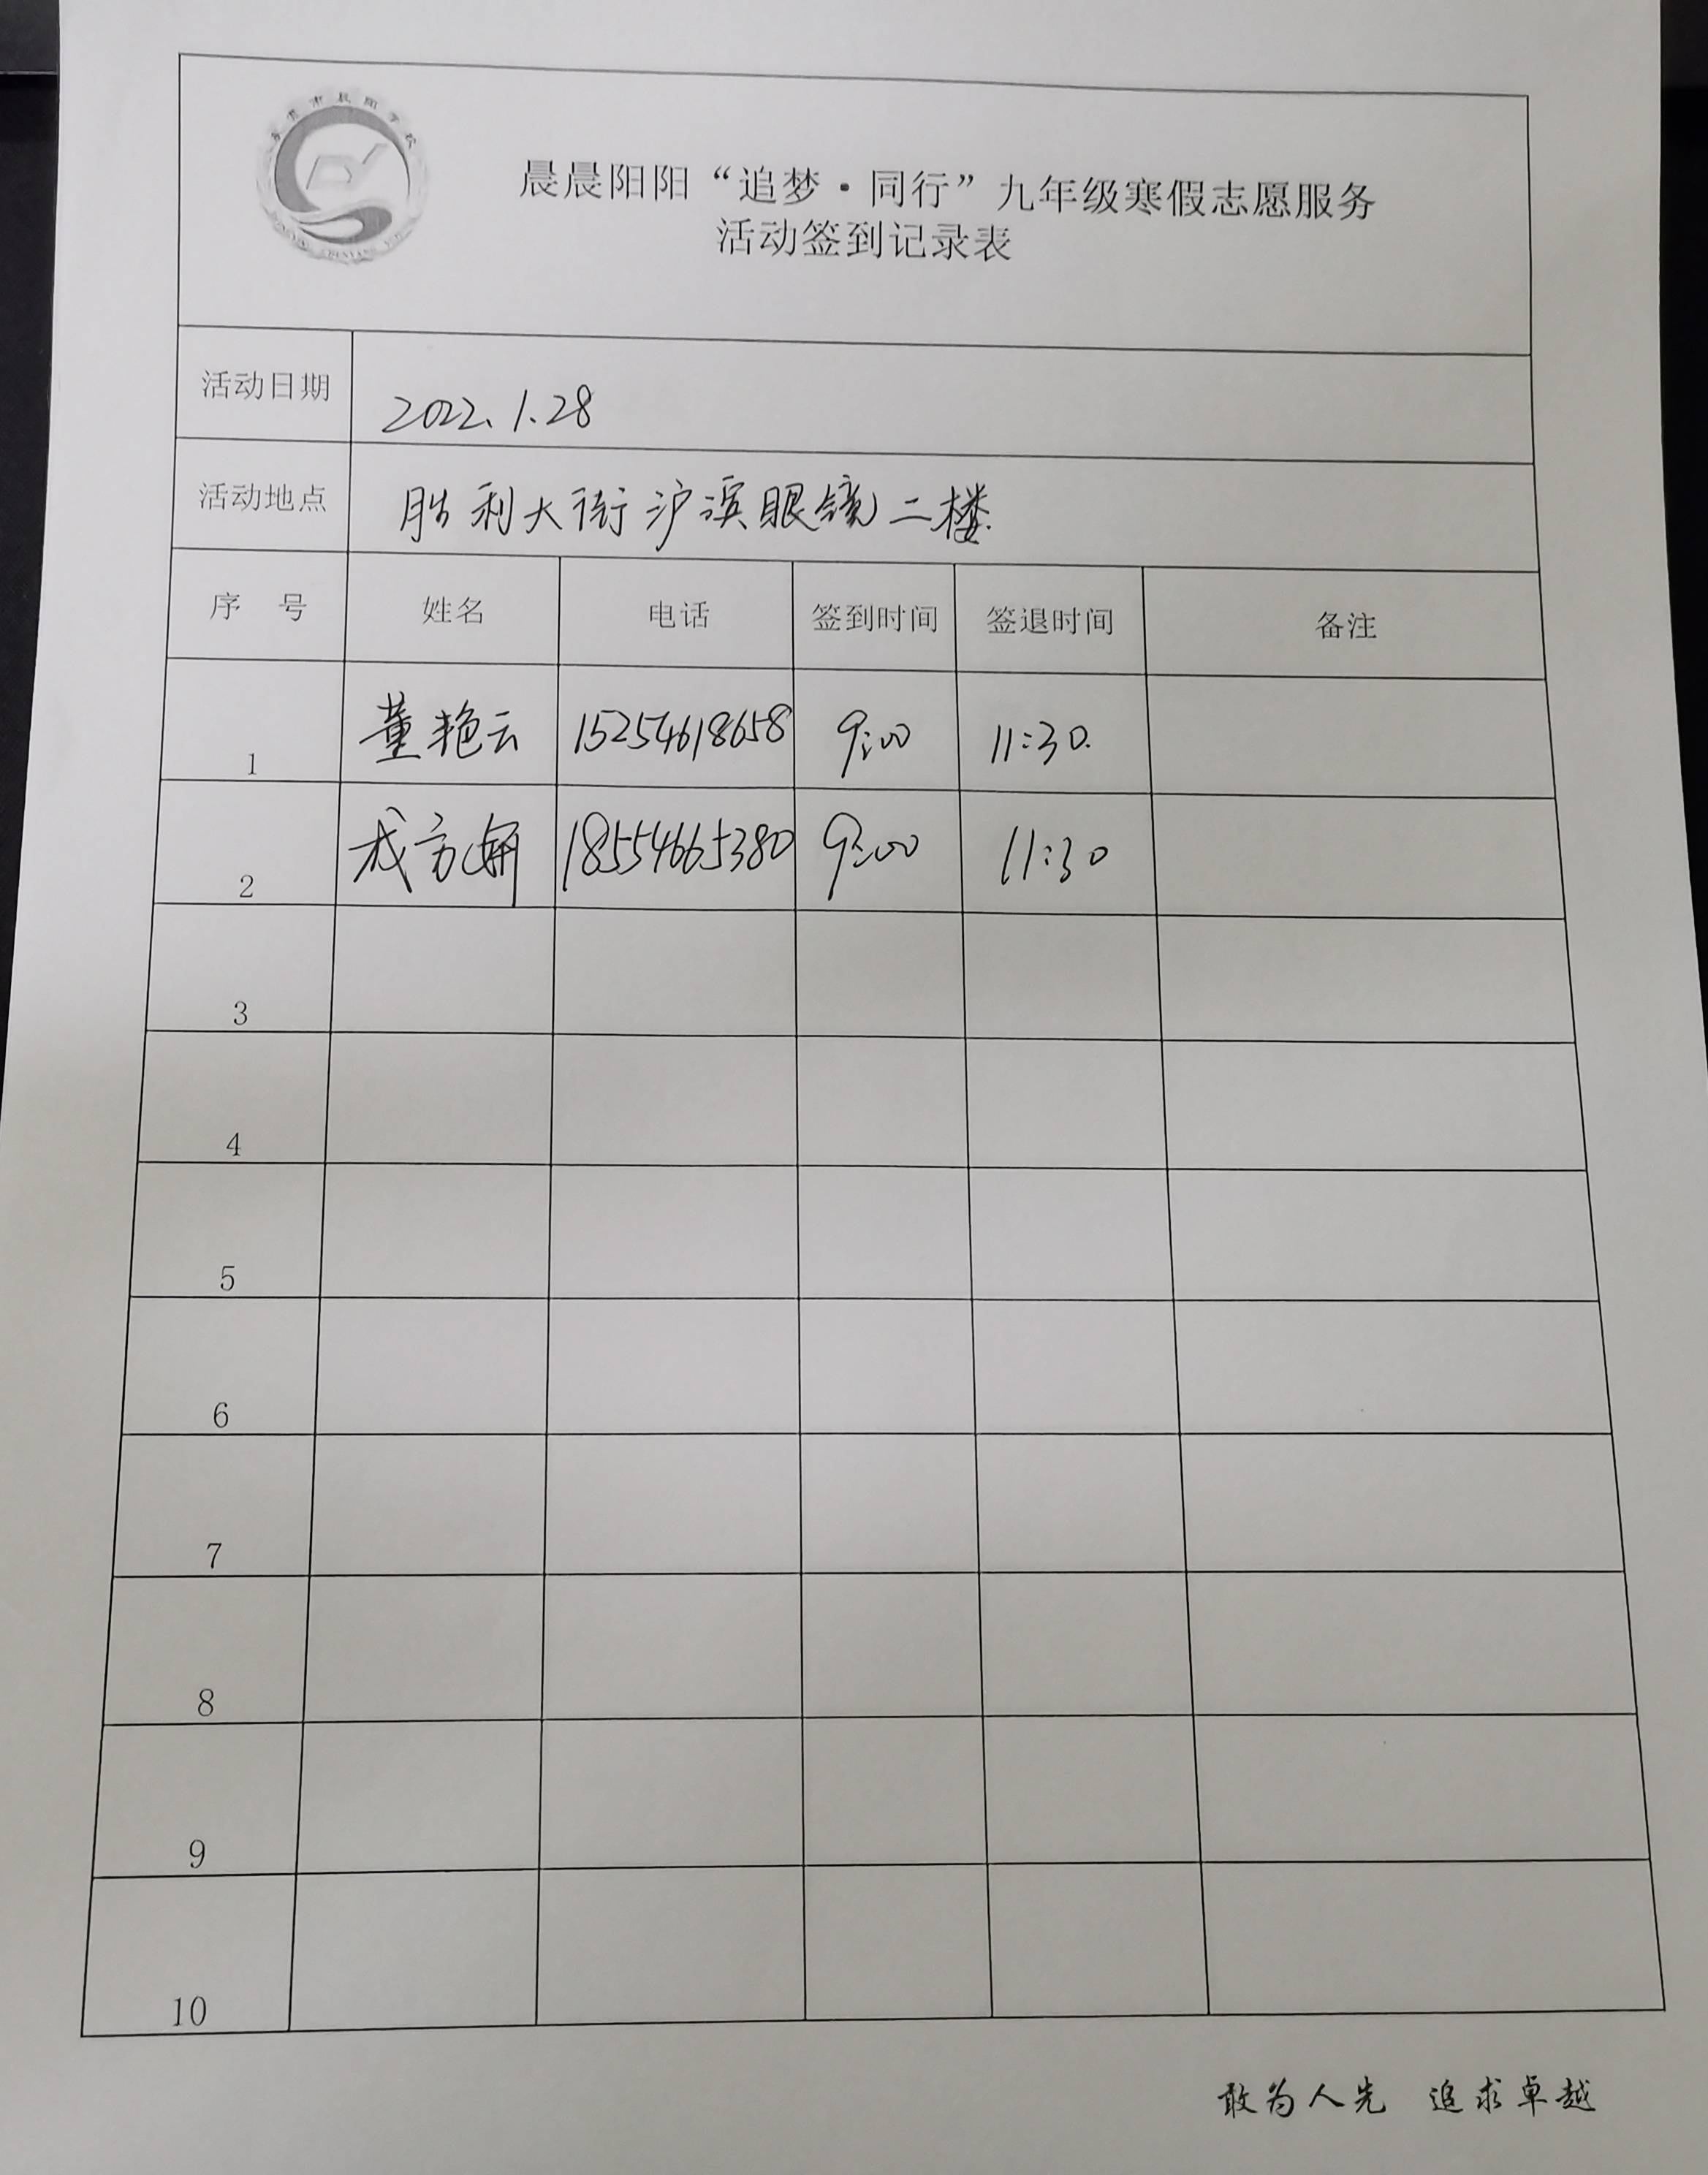 晨晨阳阳“追梦·同行”九年级寒假志愿服务
活动签到记录表
活动日期 2022.1.28
活动地点 胜利大街沪滨眼镜二楼
序 号 姓名 电话 签到时间 签退时间 备注
1 董艳云 15254618658 9:00 11:30
2 成方妍 18554665380 9:00 11:30
3
4
5
6
7
8
9
10
敢为人先 追求卓越